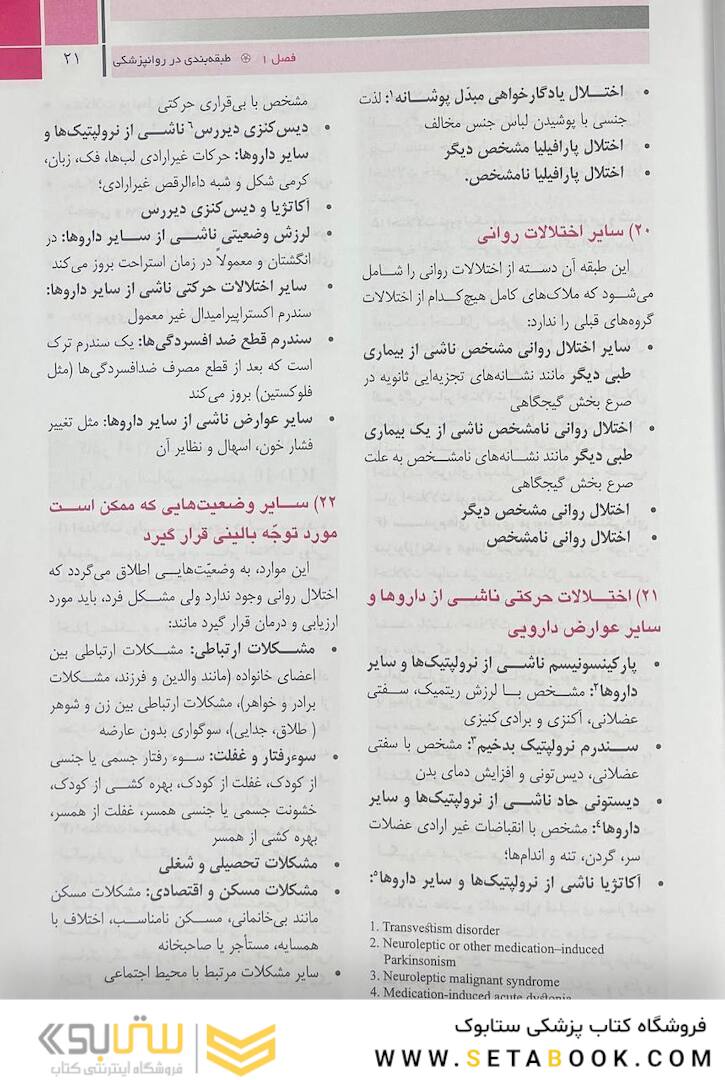 فصل ۱ ֎ طبقه‌بندی در روانپزشکی ۲۱
• اختلال یادگارخواهی مبدّل پوشانه۱: لذت
جنسی با پوشیدن لباس جنس مخالف
• اختلال پارافیلیا مشخص دیگر
• اختلال پارافیلیا نامشخص.
۲۰) سایر اختلالات روانی
این طبقه آن دسته از اختلالات روانی را شامل
می‌شود که ملاک‌های کامل هیچ‌کدام از اختلالات
گروه‌های قبلی را ندارد:
• سایر اختلال روانی مشخص ناشی از بیماری
طبی دیگر مانند نشانه‌های تجزیه‌ایی ثانویه در
صرع بخش گیجگاهی
• اختلال روانی نامشخص ناشی از یک بیماری
طبی دیگر مانند نشانه‌های نامشخص به علت
صرع بخش گیجگاهی
• اختلال روانی مشخص دیگر
• اختلال روانی نامشخص
۲۱) اختلالات حرکتی ناشی از داروها و
سایر عوارض دارویی
• پارکینسونیسم ناشی از نرولپتیک‌ها و سایر
داروها۲: مشخص با لرزش ریتمیک، سفتی
عضلانی، آکنزی و برادی‌کنیزی
• سندرم نرولپتیک بدخیم۳: مشخص با سفتی
عضلانی، دیس‌تونی و افزایش دمای بدن
• دیستونی حاد ناشی از نرولپتیک‌ها و سایر
داروها۴: مشخص با انقباضات غیر ارادی عضلات
سر، گردن، تنه و اندام‌ها؛
• آکاتژیا ناشی از نرولپتیک‌ها و سایر داروها۵:
1. Transvestism disorder
2. Neuroleptic or other medication–induced
Parkinsonism
3. Neuroleptic malignant syndrome
4. Medication-induced acute dystonia
مشخص با بی‌قراری حرکتی
• دیس‌کنزی دیررس۶ ناشی از نرولپتیک‌ها و
سایر داروها: حرکات غیرارادی لب‌ها، فک، زبان،
کرمی شکل و شبه داءالرقص غیرارادی؛
• آکاتژیا و دیس‌کنزی دیررس
• لرزش وضعیتی ناشی از سایر داروها: در
انگشتان و معمولاً در زمان استراحت بروز می‌کند
• سایر اختلالات حرکتی ناشی از سایر داروها:
سندرم اکستراپیرامیدال غیر معمول
• سندرم قطع ضد افسردگی‌ها: یک سندرم ترک
است که بعد از قطع مصرف ضدافسردگی‌ها (مثل
فلوکستین) بروز می‌کند
• سایر عوارض ناشی از سایر داروها: مثل تغییر
فشار خون، اسهال و نظایر آن
۲۲) سایر وضعیت‌هایی که ممکن است
مورد توجّه بالینی قرار گیرد
این موارد، به وضعیّت‌هایی اطلاق می‌گردد که
اختلال روانی وجود ندارد ولی مشکل فرد، باید مورد
ارزیابی و درمان قرار گیرد مانند:
• مشکلات ارتباطی: مشکلات ارتباطی بین
اعضای خانواده (مانند والدین و فرزند، مشکلات
برادر و خواهر)، مشکلات ارتباطی بین زن و شوهر
( طلاق، جدایی)، سوگواری بدون عارضه
• سوءرفتار و غفلت: سوء رفتار جسمی یا جنسی
از کودک، غفلت از کودک، بهره کشی از کودک،
خشونت جسمی یا جنسی همسر، غفلت از همسر،
بهره کشی از همسر
• مشکلات تحصیلی و شغلی
• مشکلات مسکن و اقتصادی: مشکلات مسکن
مانند بی‌خانمانی، مسکن نامناسب، اختلاف با
همسایه، مستأجر یا صاحبخانه
• سایر مشکلات مرتبط با محیط اجتماعی
فروشگاه کتاب پزشکی ستابوک
WWW.SETABOOK.COM
ستابوک
فروشگاه اینترنتی کتاب